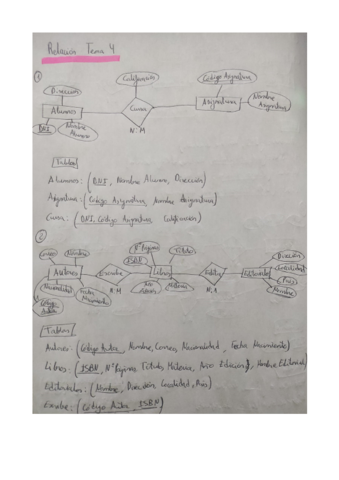 Relación Tema 4
①
Calificación
Código Asignatura
Dirección
Alumnos
Cursa
Asignatura
Nombre Asignatura
DNI
Nombre Alumno
N:M
Tablas
Alumnos: (DNI, Nombre Alumno, Dirección)
Asignatura: (Código Asignatura, Nombre Asignatura)
Cursa: (DNI, Código Asignatura, Calificación)
②
Nº Páginas
Título
Correo
Nombre
ISBN
Dirección
Localidad
Autores
Escribe
Libros
Edita
Editoriales
País
Nacionalidad
Fecha Nacimiento
N:M
Materia
N:1
Nombre
Código Autor
Tablas
Autores: (Código Autor, Nombre, Correo, Nacionalidad, Fecha Nacimiento)
Libros: (ISBN, Nº Páginas, Título, Materia, Año Edición, Nombre Editorial)
Editoriales: (Nombre, Dirección, Localidad, País)
Escribe: (Código Autor, ISBN)